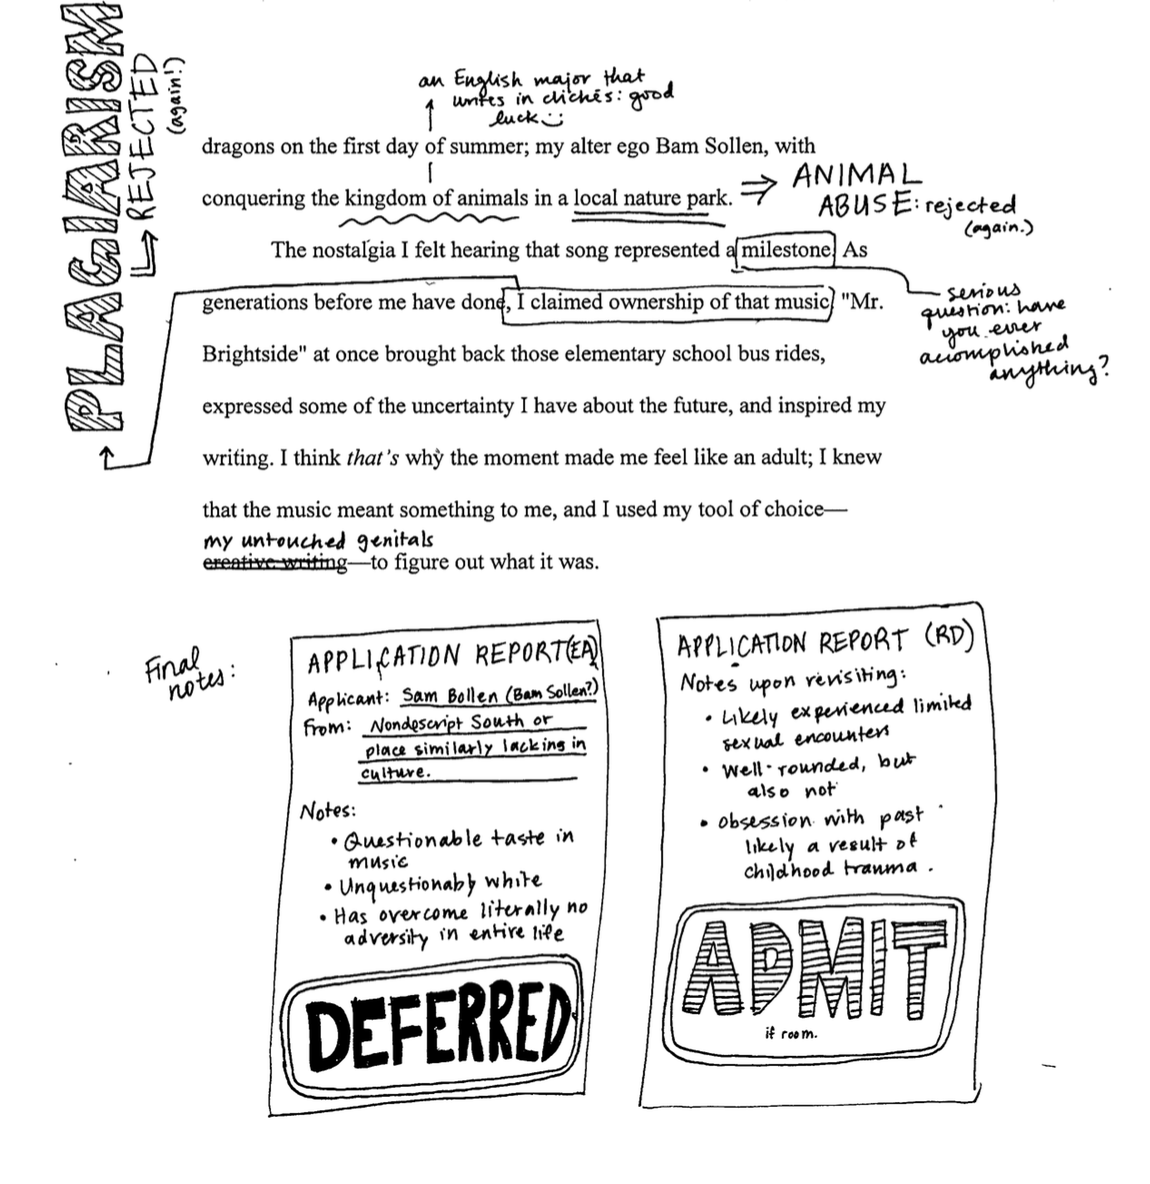 PLAGIARISM
REJECTED
(again!)
an English major that
writes in clichés: good
luck
dragons on the first day of summer; my alter ego Bam Sollen, with
conquering the kingdom of animals in a local nature park.
ANIMAL
ABUSE: rejected
(again.)
The nostalgia I felt hearing that song represented a milestone. As
generations before me have done, I claimed ownership of that music. "Mr.
serious
question: have
you ever
accomplished
anything?
Brightside" at once brought back those elementary school bus rides,
expressed some of the uncertainty I have about the future, and inspired my
writing. I think that's why the moment made me feel like an adult; I knew
that the music meant something to me, and I used my tool of choice—
my untouched genitals
creative writing—to figure out what it was.
Final
notes:
APPLICATION REPORT (EA)
Applicant: Sam Bollen (Bam Sollen?)
From: Nondescript South or
place similarly lacking in
culture.
Notes:
• Questionable taste in
music
• Unquestionably white
• Has overcome literally no
adversity in entire life
DEFERRED
APPLICATION REPORT (RD)
Notes upon revisiting:
• Likely experienced limited
sexual encounters
• Well-rounded, but
also not
• obsession with past
likely a result of
childhood trauma.
ADMIT
if room.